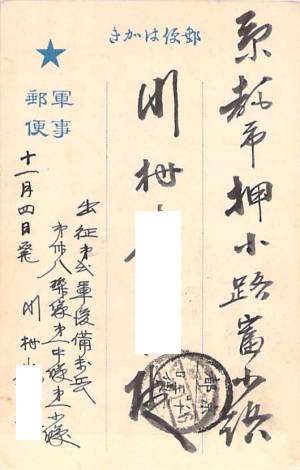 郵便はかき
軍事
郵便
京都市押小路富小路
川村
殿
出征第弐軍後備歩兵
第卅八聯隊第一中隊第一小隊
十一月四日発 川村